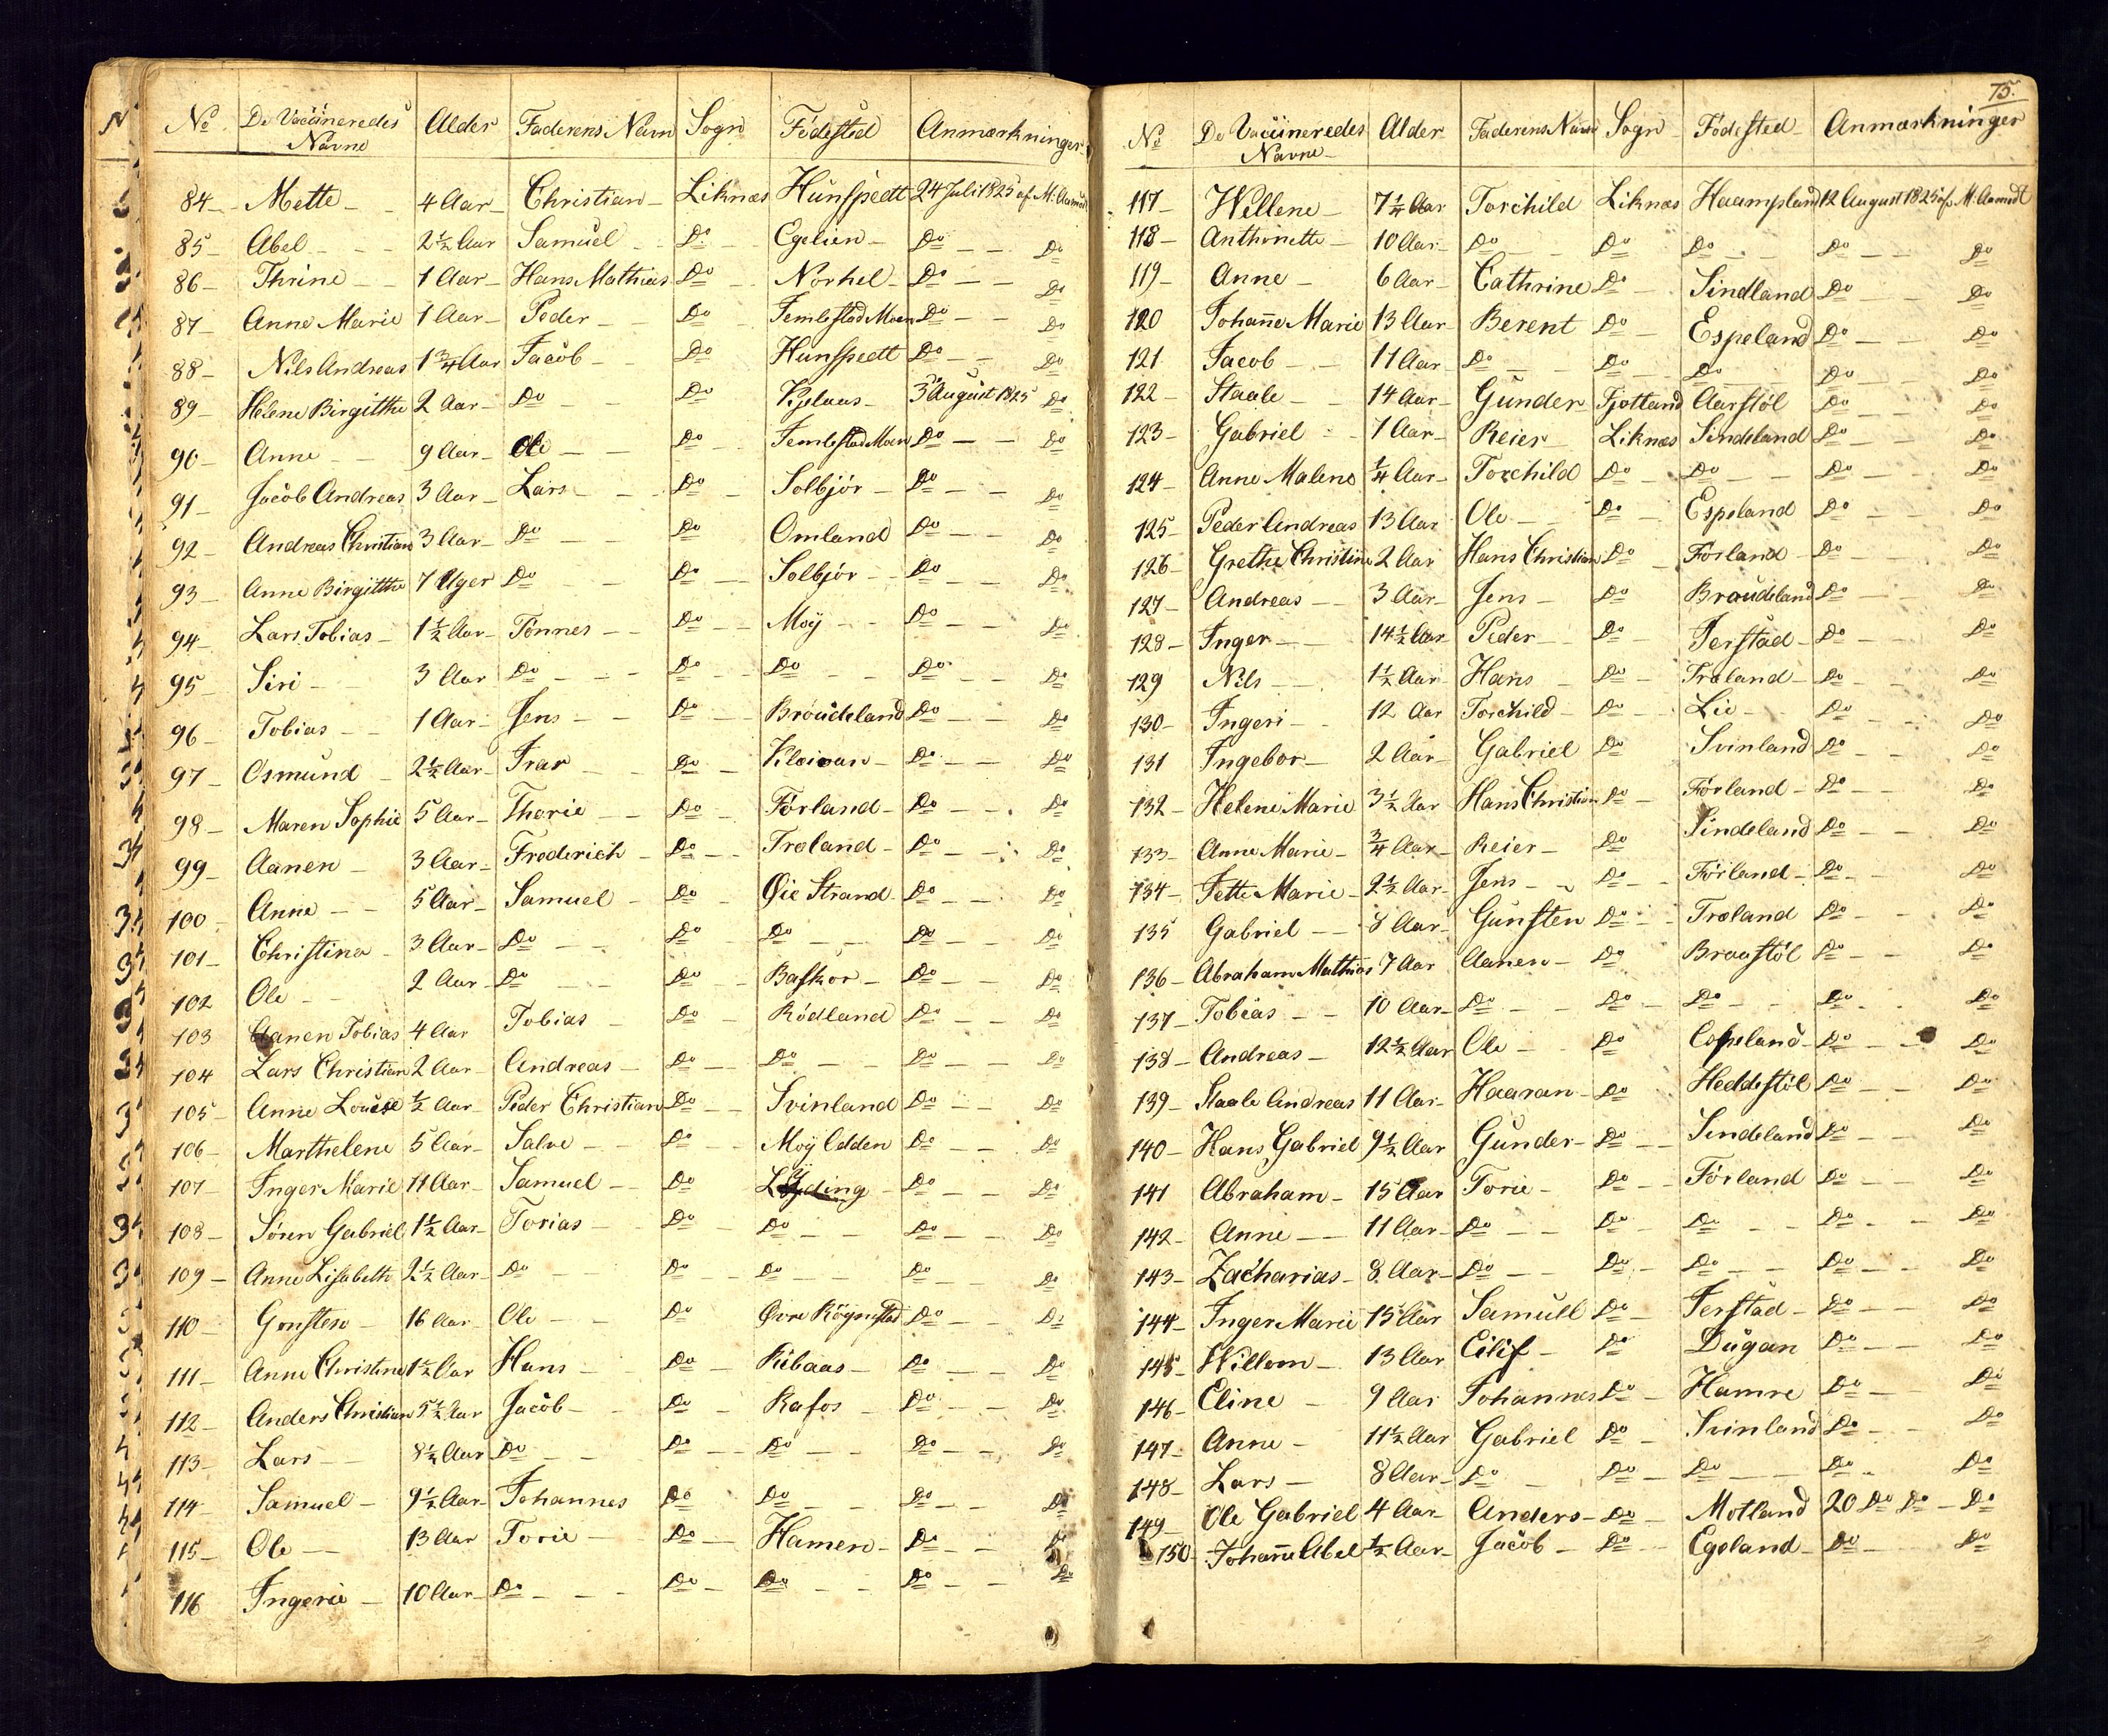 No De Vaccineredes Navne Alder Faderens Navn Sogn Födested Anmærkninger
84 Mette 4 Aar Christian Liknæs Hunspedt 24 Juli 1825 af M: Aamodt
85 Abel 2½ Aar Samuel Do Egelien Do Do
86 Thrine 1 Aar Hans Mathias Do Norhel Do Do
87 Anne Marie 1 Aar Peder Do Femlestad Moen Do Do
88 Nils Andreas 1¾ Aar Jacob Do Hunspedt Do Do
89 Helene Birgitthe 2 Aar Do Do Kjelaas 3 August 1825 Do
90 Anne 9 Aar Ole Do Femlestad Moen Do Do
91 Jacob Andreas 3 Aar Lars Do Solbjör Do Do
92 Andreas Christian 3 Aar Do Do Omland Do Do
93 Anne Birgitthe 7 Uger Do Do Solbjör Do Do
94 Lars Tobias 1½ Aar Tönnes Do Moÿ Do Do
95 Siri 3 Aar Do Do Do Do Do
96 Tobias 1 Aar Jens Do Broudeland Do Do
97 Osmund 2½ Aar Ivar Do Kloivan Do Do
98 Maren Sophie 5 Aar Thorie Do Förland Do Do
99 Aanen 3 Aar Frederich Do Træland Do Do
100 Anne 5 Aar Samuel Do Øie Strand Do Do
101 Christina 3 Aar Do Do Do Do Do
102 Ole 2 Aar Do Do Baskor Do Do
103 Aanen Tobias 4 Aar Tobias Do Rödland Do Do
104 Lars Christian 2 Aar Andreas Do Do Do Do
105 Anne Louise ½ Aar Peder Christian Do Svinland Do Do
106 Marthelene 5 Aar Salve Do Moÿ Odden Do Do
107 Inger Marie 11 Aar Samuel Do Lÿding Do Do
108 Sören Gabriel 1½ Aar Torias Do Do Do Do
109 Anne Lisabeth 2½ Aar Do Do Do Do Do
110 Gonsten 16 Aar Ole Do Øvre Rögnestad Do Do
111 Anne Christine 1½ Aar Hans Do Ribaas Do Do
112 Anders Christian 5½ Aar Jacob Do Rafos Do Do
113 Lars 8½ Aar Do Do Do Do Do
114 Samuel 9½ Aar Johannes Do Do Do Do
115 Ole 13 Aar Torie Do Hamren Do Do
116 Ingerie 10 Aar Do Do Do Do Do
75.
No De Vaccineredes Navne Alder Faderens Navn Sogn Födested Anmærkninger
117 Willene 7¼ Aar Torchild Liknæs Haampland 12 August 1825 af M. Aamodt
118 Anthonette 10 Aar Do Do Do Do Do
119 Anne 6 Aar Cathrine Do Sindland Do Do
120 Johanne Marie 13 Aar Berent Do Espeland Do Do
121 Jacob 11 Aar Do Do Do Do Do
122 Staale 14 Aar Gunder Fjotland Aarstöl Do Do
123 Gabriel 1 Aar Reier Liknæs Sindeland Do Do
124 Anne Malene ¼ Aar Torchild Do Do Do Do
125 Peder Andreas 13 Aar Ole Do Espeland Do Do
126 Grethe Christine 2 Aar Hans Christian Do Förland Do Do
127 Andreas 3 Aar Jens Do Broudeland Do Do
128 Inger 14½ Aar Peder Do Jerstad Do Do
129 Nils 1½ Aar Hans Do Træland Do Do
130 Ingeri 12 Aar Torchild Do Lie Do Do
131 Ingebor 2 Aar Gabriel Do Svinland Do Do
132 Helene Marie 3½ Aar Hans Christian Do Förland Do Do
133 Anne Marie ¾ Aar Reier Do Sindeland Do Do
134 Jette Marie 2½ Aar Jens Do Förland Do Do
135 Gabriel 8 Aar Gunsten Do Træland Do Do
136 Abraham Mathias 7 Aar Aanen Do Braastöl Do Do
137 Tobias 10 Aar Do Do Do Do Do
138 Andreas 12½ Aar Ole Do Espeland Do Do
139 Staale Andreas 11 Aar Haaran Do Heddestöl Do Do
140 Hans Gabriel 9½ Aar Gunder Do Sindeland Do Do
141 Abraham 15 Aar Torie Do Förland Do Do
142 Anne 11 Aar Do Do Do Do Do
143 Zacharias 8 Aar Do Do Do Do Do
144 Inger Marie 15 Aar Samuell Do Jerstad Do Do
145 Willom 13 Aar Eilif Do Dugan Do Do
146 Eline 9 Aar Johannes Do Hamre Do Do
147 Anne 11½ Aar Gabriel Do Svinland Do Do
148 Lars 8 Aar Do Do Do Do Do
149 Ole Gabriel 4 Aar Anders Do Motland 20 Do Do Do
150 Johanne Abel ½ Aar Jacob Do Egeland Do Do